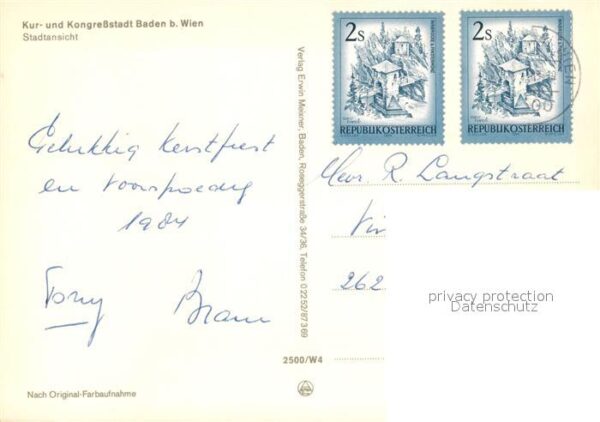 Kur- und Kongreßstadt Baden b. Wien
Stadtansicht
Gelukkig Kerstfeest
en voorspoedig
1984
Tony Bram
Nach Original-Farbaufnahme
Verlag Erwin Meixner, Baden, Roseggerstraße 34/36, Telefon 02252/87369
2500/W4
2s
REPUBLIK ÖSTERREICH
2s
REPUBLIK ÖSTERREICH
Mevr. R. Langstraat
262
privacy protection
Datenschutz